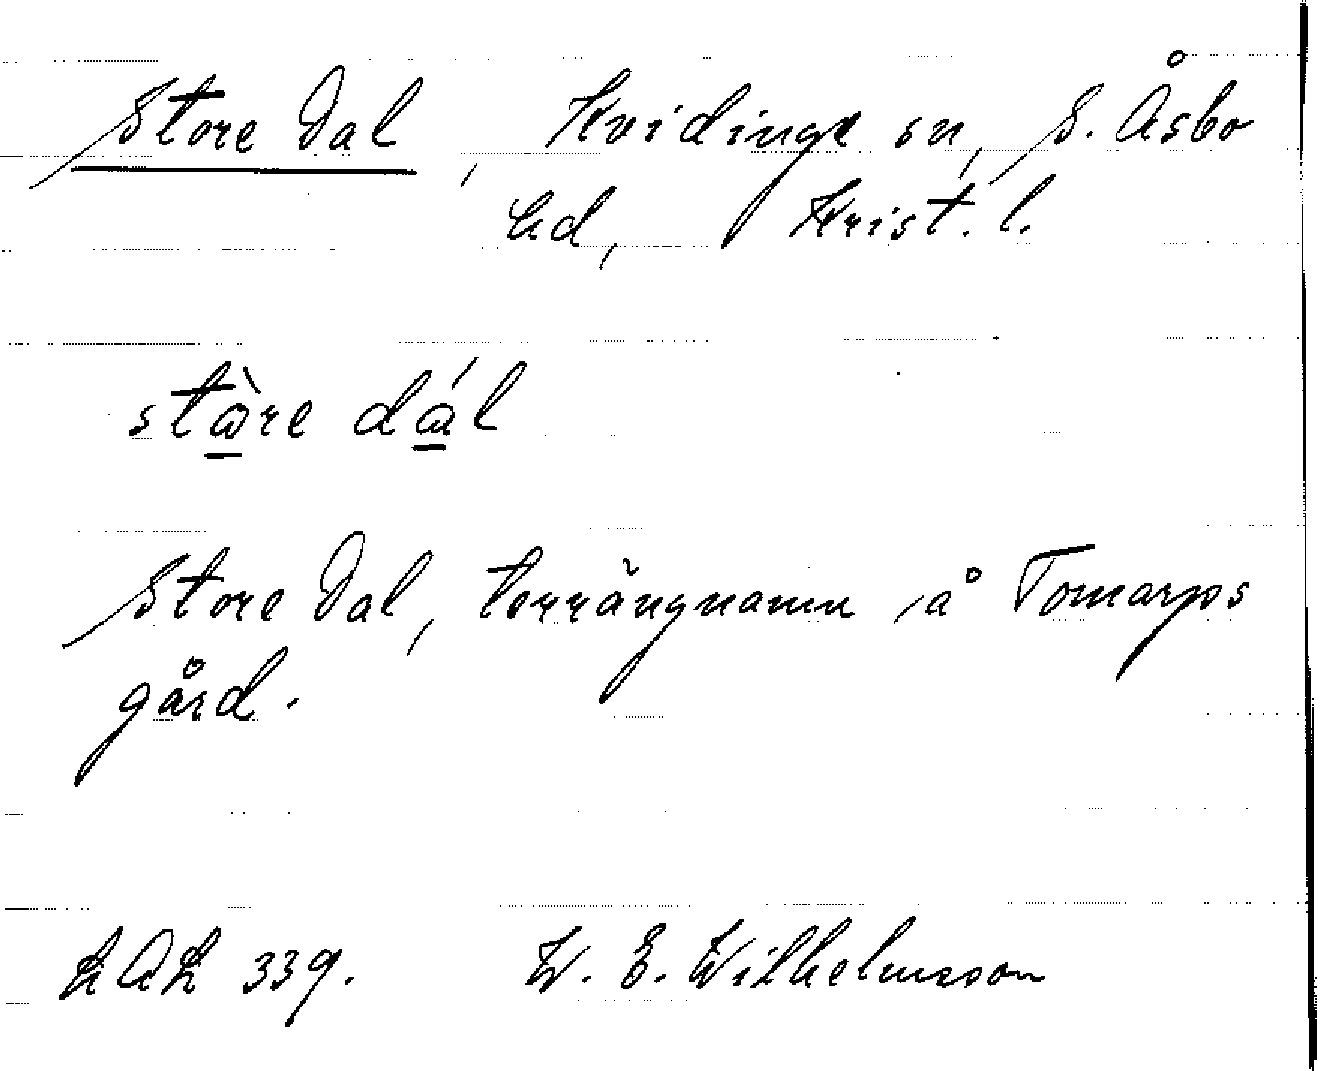 Store Dal, Kvidinge sn, S. Åsbo
hd, Krist. l.
stὼ̲re dώ̲l
Store Dal, terrängnamn å Tomarps
gård.
LAL 339. W. E. Wilhelmsson